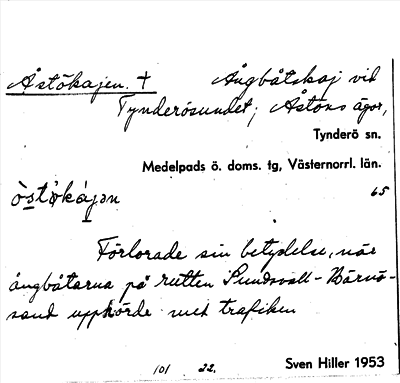 Åstökajen. † Ångbåtskaj vid
Tynderösundet; Åstöns ägor,
Tynderö sn.
Medelpads ö. doms. tg, Västernorrl. län.
65
Förlorade sin betydelse, när
ångbåtarna på rutten Sundsvall-Härnö-
sand upphörde med trafiken
101 22.
Sven Hiller 1953